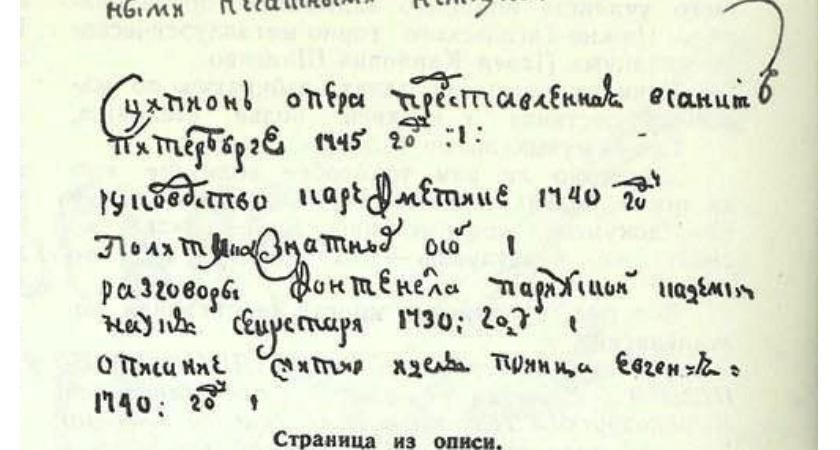 ными печатными
Сципионъ опера преставленная всанит
птербурге 1745 году 1:
руководство кариѳметике 1740 году
Политика знатныѣ осоⷠ 1
разговоры Фонтенела парижскои академии
наукъ секретаря 1730: году 1
описание жития и дела принца Евгениа:
1740: году 1
Страница из описи.